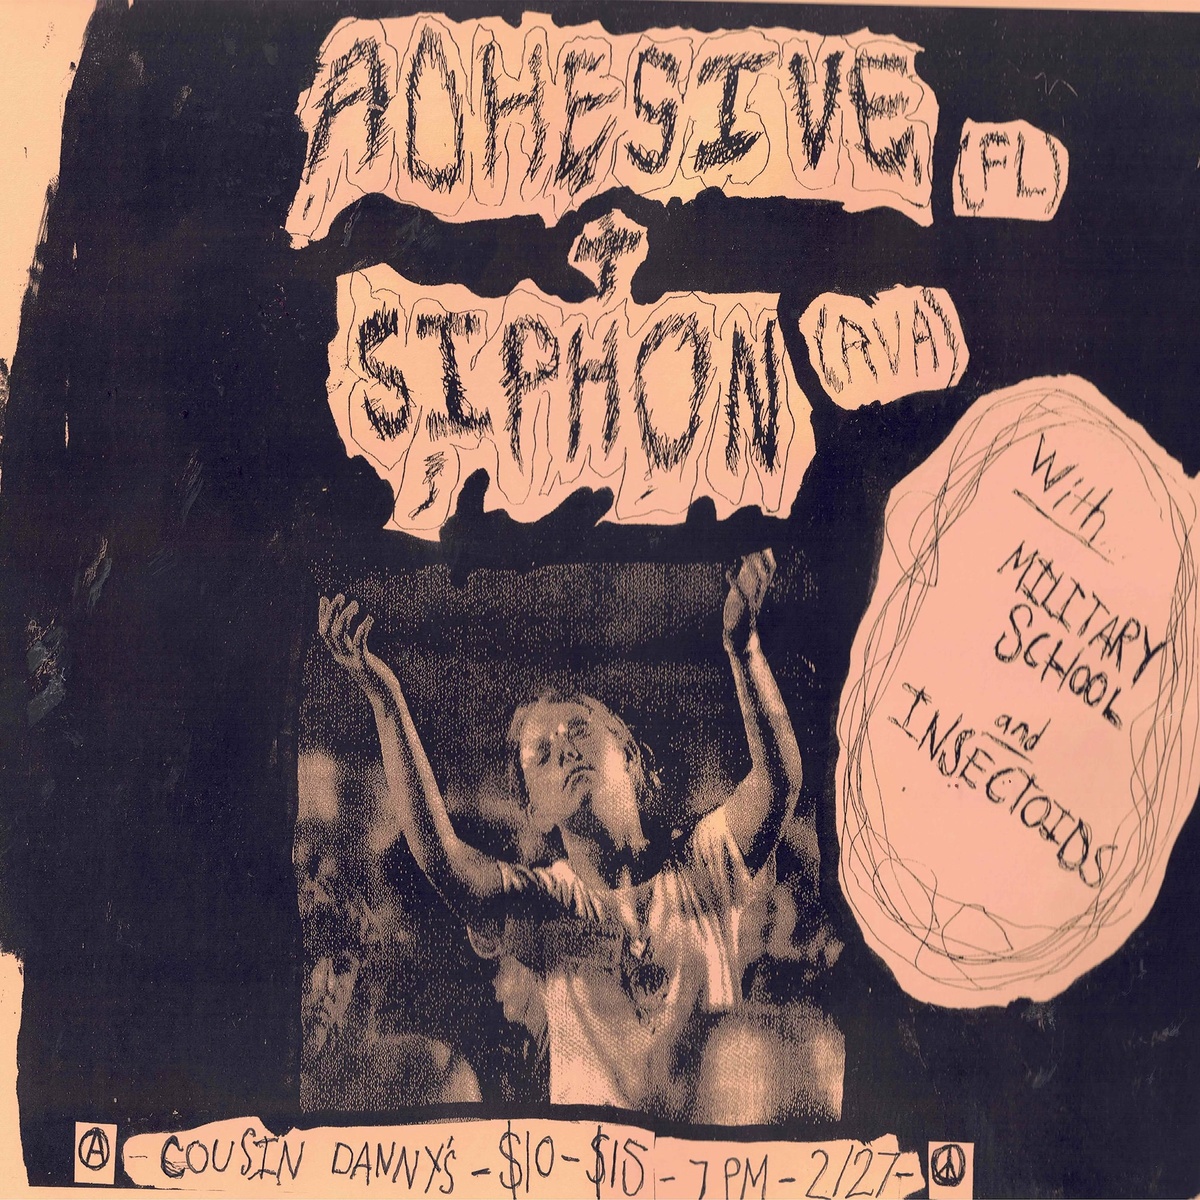 ADHESIVE (FL)
+
SIPHON (AVA)
With
MILITARY
SCHOOL
and
INSECTOIDS
- COUSIN DANNY'S - $10 - $15 - 7 PM - 2/27 -